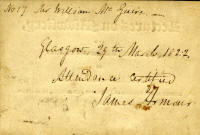 No 17 Mr William Mc Guire
Glasgow 29th March 1822
Attendance certified
James Armour